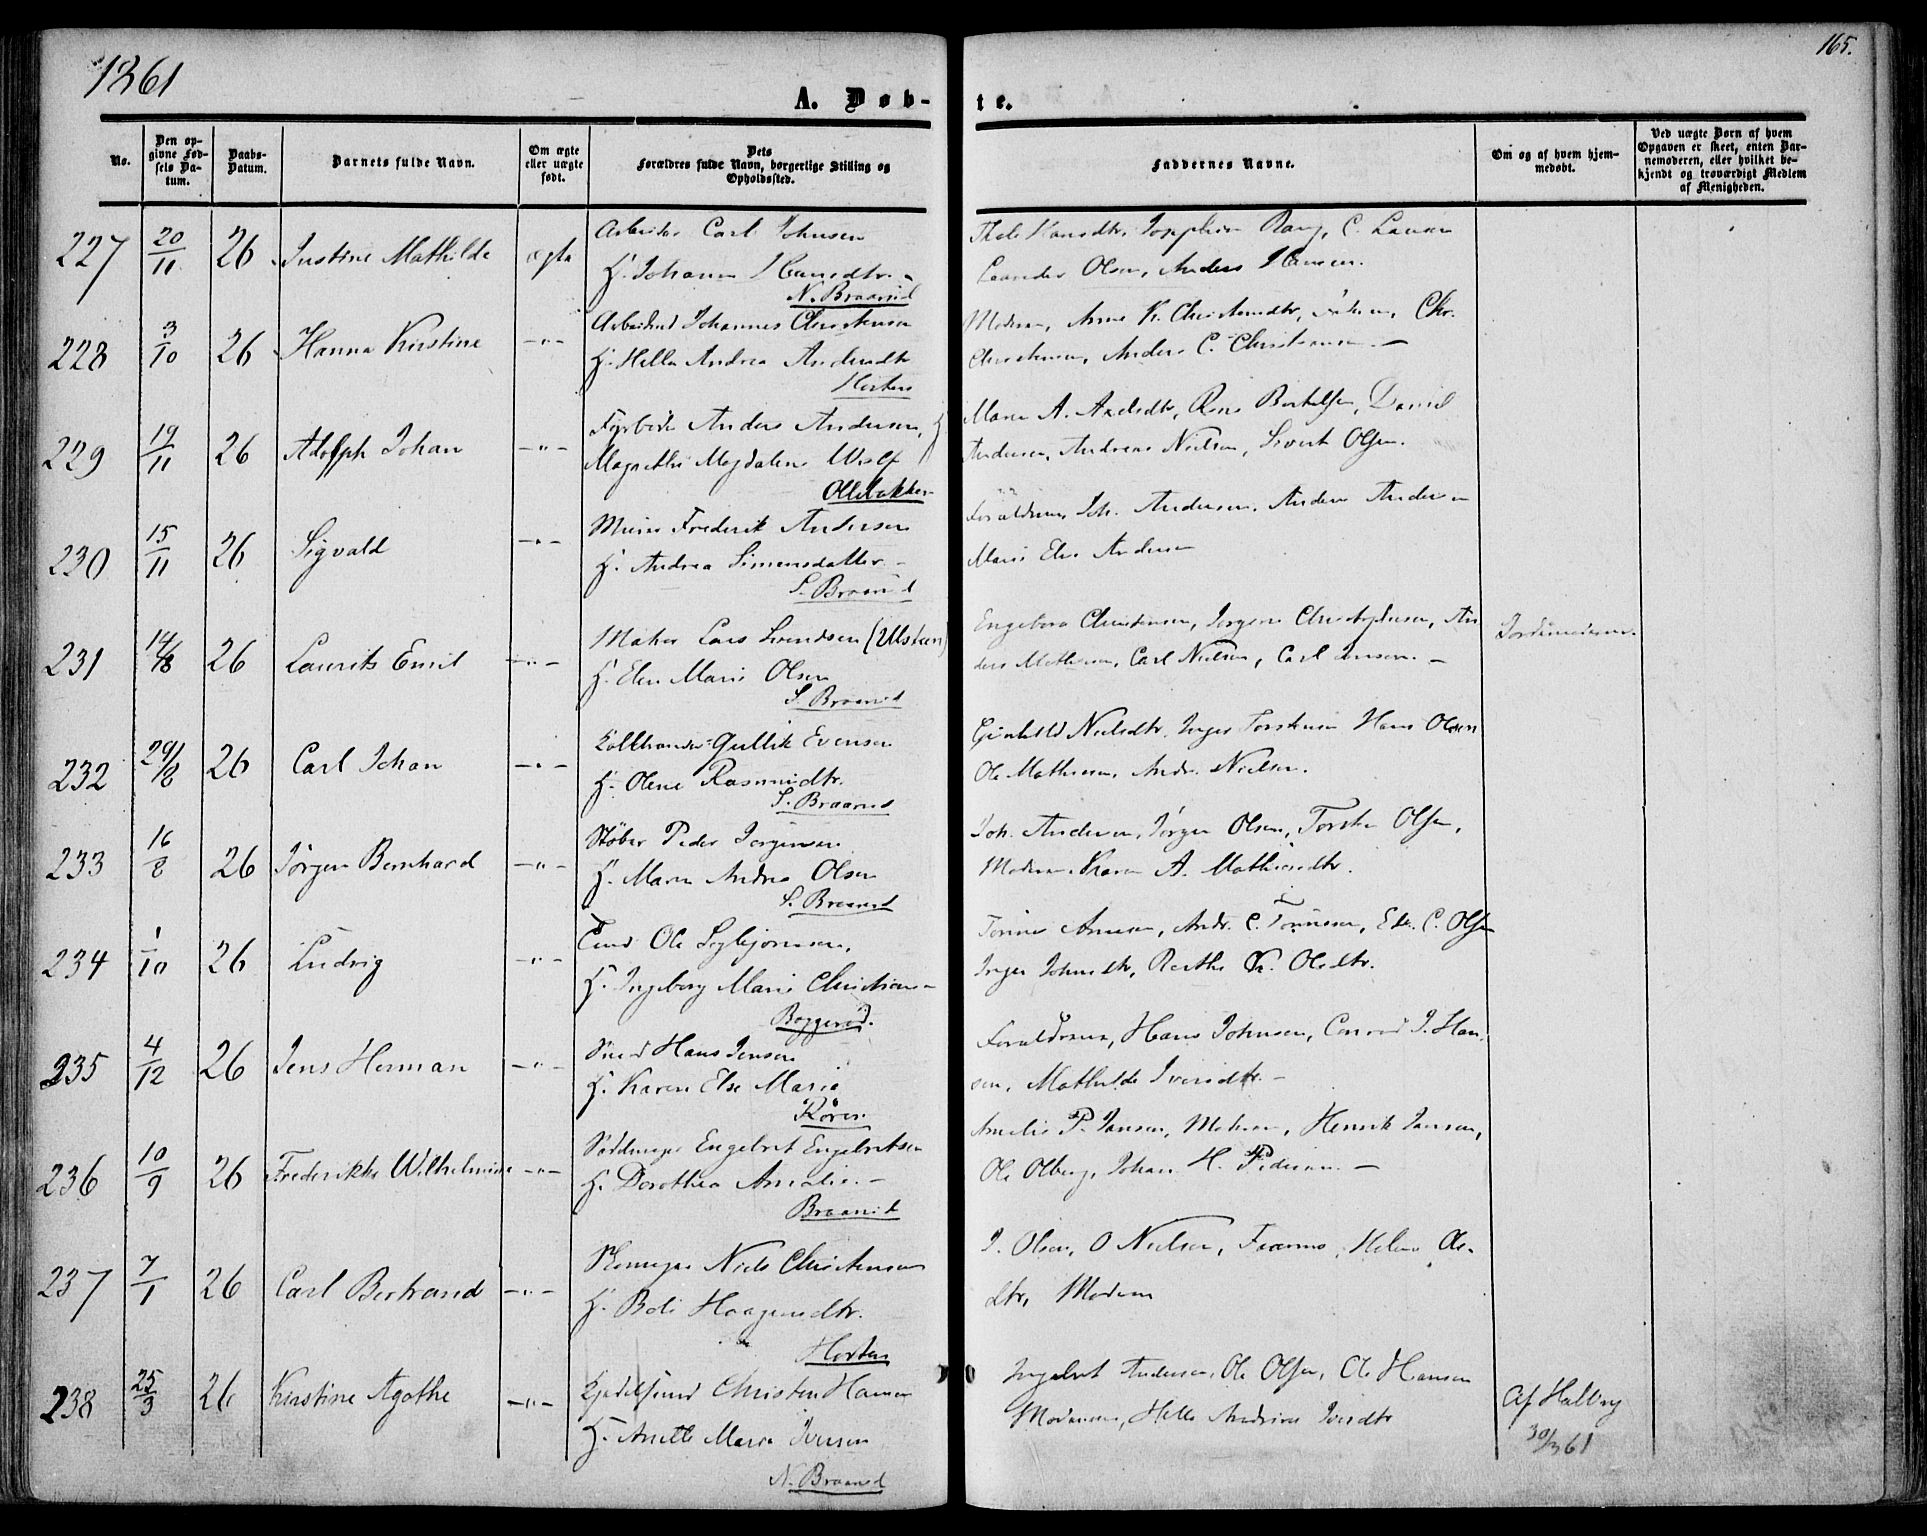 1861
165.
A. Døb-
te.
No.
Den op-
givne Fød-
sels Da-
tum.
Daabs-
Datum.
Barnets fulde Navn.
Om ægte
eller uægte
født.
Dets
Forældres fulde Navn, borgerlige Stilling og
Opholdssted.
Faddernes Navne.
Om og af hvem hjem-
medøbt.
Ved uægte Børn af hvem
Opgaven er skeet, enten Bar-
nemoderen, eller hvilket be-
kjendt og troværdigt Medlem
af Menigheden.
227 20/11 26 Justine Mathilde ægte
Arbeider Carl Johnsen
H. Johanne Hansdtr. -
N. Braarud
Hansdtr, Josephine C. Larsen
Leander Olsen, Anders Hansen.
228 3/10 26 Hanna Kirstine -"-
Johannes Christensen
H. Helle Andrea Andersdtr
Horten
Moderen, Anne K. Christensdtr, Chr.
Christensen, Anders C. Christiansen. -
229 19/11 26 Adolph Johan -"-
Fyrbøder Anders Andersen, H
Magrethe Magdalene Wulf
Ollebakken
Maren A. Axelsdtr, Bertelsen, Daniel
Andersen, Andreas Nielsen, Sivert Olsen.
230 15/11 26 Sigvald -"-
Murer Frederik Andersen
H. Andrea Simensdatter -
S. Braarud
Forældrene, Joh. Andersen, Anders Andersen
Maren Else Andersen
231 14/8 26 Laurits Emil -"-
Lars Svendsen (Ulsteen)
H. Elen Marie Olsen
S. Braarud
Engeborg Christensen, Jørgen Christophersen, An
ders Mathisen, Carl Nielsen, Carl Jensen. -
Jordemoderen.
232 29/8 26 Carl Johan -"-
Gullik Evensen
H. Olene Rasmusdtr.
S. Braarud
Gunhild Nielsdtr, Inger Torstensen Hans Olsen
Ole Mathisen, Andr. Nielsen.
233 16/8 26 Jørgen Bernhard -"-
Støber Peder Jørgensen
H. Maren Andrea Olsen
S. Braarud
Joh. Andersen, Jørgen Olsen, Torsten Olsen,
Moderen, Karen A. Mathisdtr.
234 1/10 26 Ludvig -"-
Ole Seybjørnsen,
H. Ingeborg Marie Christians-
Boggerød.
Tønnes Andr. C. Tønnesen, Ed. C. Olsen
Inger Johnsdtr, Berthe K. Olsdtr.
235 4/12 26 Jens Herman -"-
Smed Hans Jensen
H. Karen Else Marie
Røren.
Forældrene, Hans Johnsen, Conrad J. Han-
sen, Mathilde Iversdtr. -
236 10/9 26 Frederikke Wilhelmine -"-
Engelbret Engelbretsen
H. Dorothea Amalie. -
Braarud
Amalie P. Jansen, Moderen, Henrik Jansen,
Ole Olberg, Johan H. Pedersen. -
237 7/1 26 Carl Bertrand -"-
Niels Christensen
H. Bolette Haagensdtr.
Horten
J. Olsen, O Nielsen, Helene Ols-
dtr, Moderen
238 25/3 26 Kirstine Agathe -"-
Kjedelsmed Christen Hansen
H. Anette Marie Iversen
N. Braarud
Ingelbret Andersen, Ole Olsen, Ole Hansen
Moderen, Helle Andrine Iversdtr
Af Halling
30/3 61